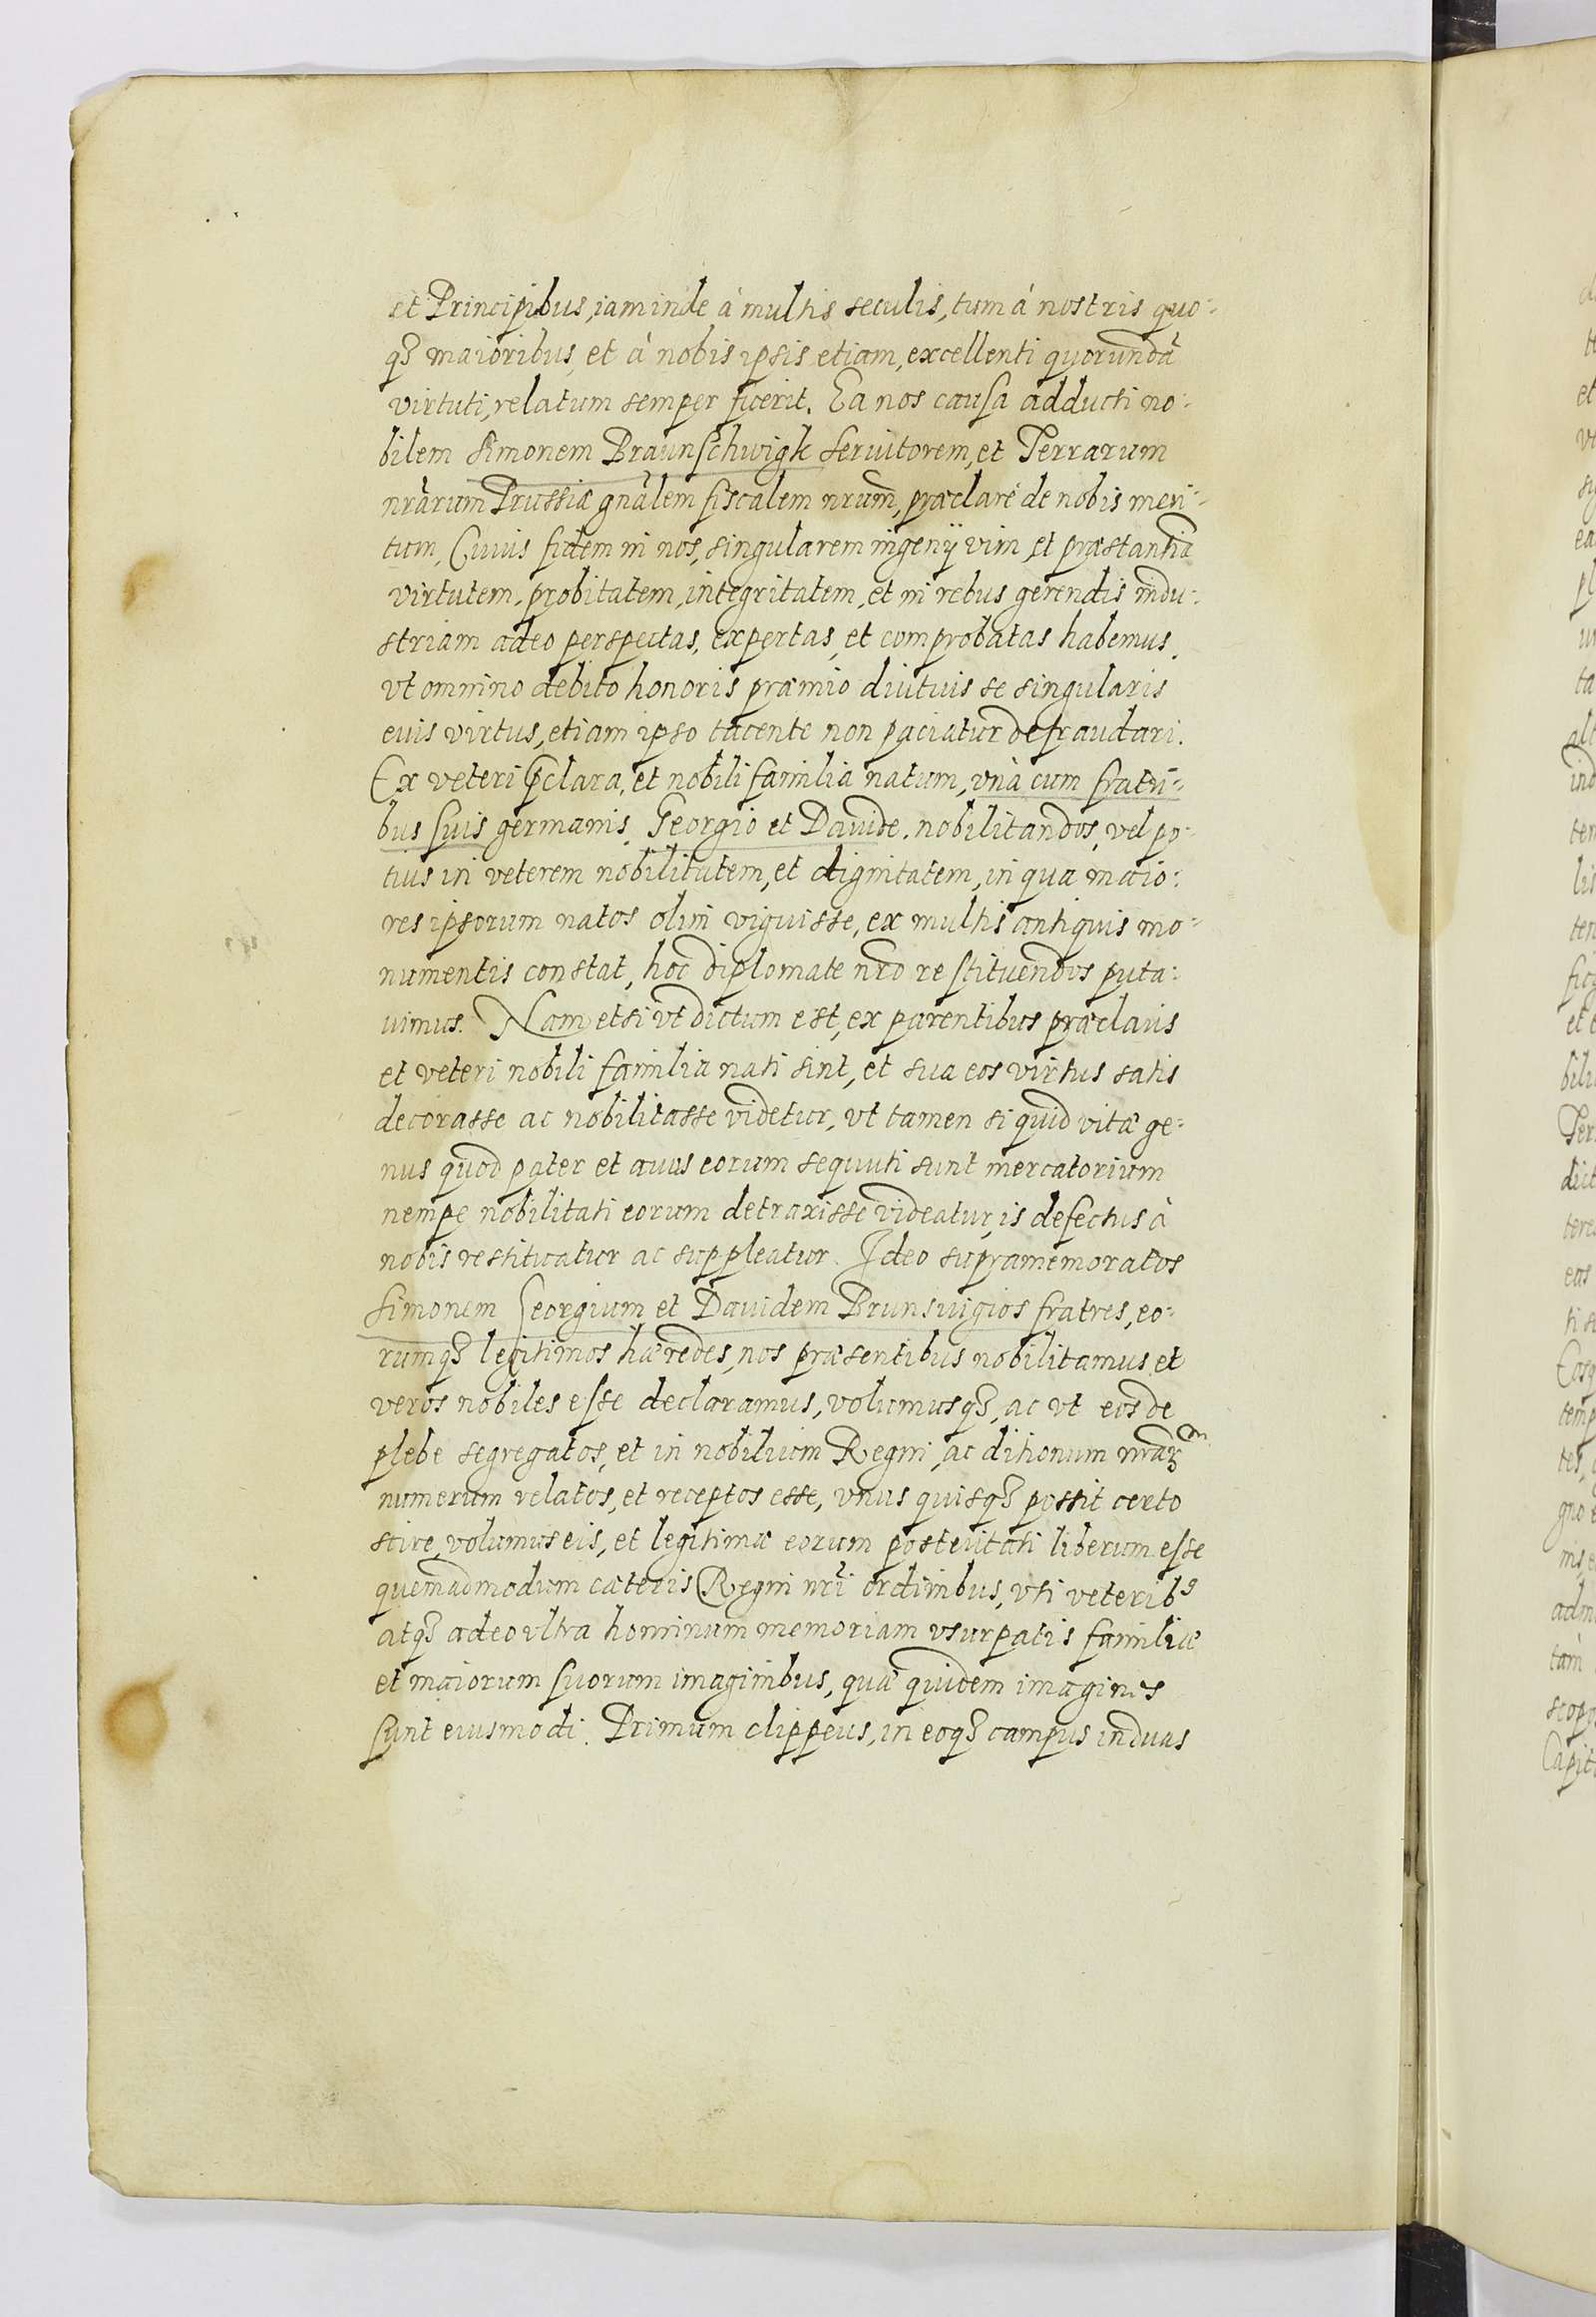 et Principibus, iam inde à multis seculis, tum à nostris quo-
q3 maioribus, et à nobis ipsis etiam, excellenti quorundã
virtuti, relatum semper fuerit. Ea nos causa adducti no-
bilem Simonem Braunschwigk Seruitorem, et Terrarum
nrãrum Prussiæ gnãlem fiscalem nrũm, præclarè de nobis meri-
tum, Cuius fidem in nos, singularem ingenij vim, et præstantiã
virtutem, probitatem, integritatem, et in rebus gerendis indu-
striam adeo perspectas, expertas, et comprobatas habemus,
vt omnino debito honoris præmio diutius se singularis
euis virtus, etiam ipso tacente non paciatur defraudari.
Ex veteri p̃clara, et nobili familia natum, vnà cum fratri-
bus suis germanis, Georgio et Dauide, nobilitandos, vel po-
tius in veterem nobilitatem, et dignitatem, in qua maio-
res ipsorum natos olim viguisse, ex multis antiquis mo-
numentis constat, hoc diplomate nr̃o restituendos puta-
uimus. Nam etsi vt dictum est, ex parentibus præclaris
et veteri nobili familia nati sint, et sua eos virtus satis
decorasse ac nobilitasse videtur, vt tamen si quid vitæ ge-
nus quod pater et auus eorum sequuti sunt mercatorium
nempe nobilitati eorum detraxisse videatur, is defectus à
nobis restituatur ac suppleatur. Ideo supramemoratos
Simonem Georgium et Dauidem Brunsuigios fratres, eo-
rumq3 legitimos hæredes, nos præsentibus nobilitamus et
veros nobiles esse declaramus, volumusq3, ac vt eos de
plebe segregatos, et in nobilium Regni, ac ditionum nrãrum
numerum relatos, et receptos esse, vnus quisq3 possit certo
scire, volumus eis, et legitimæ eorum posteritati liberum esse
quemadmodum cæteris Regni nr̃i ordinibus, vti veterib9
atq3 adeo vltra hominum memoriam vsurpatis familiæ
et maiorum suorum imaginibus, quæ quidem imagines
sunt eiusmodi. Primum clippeus, in eoq3 campus in duas